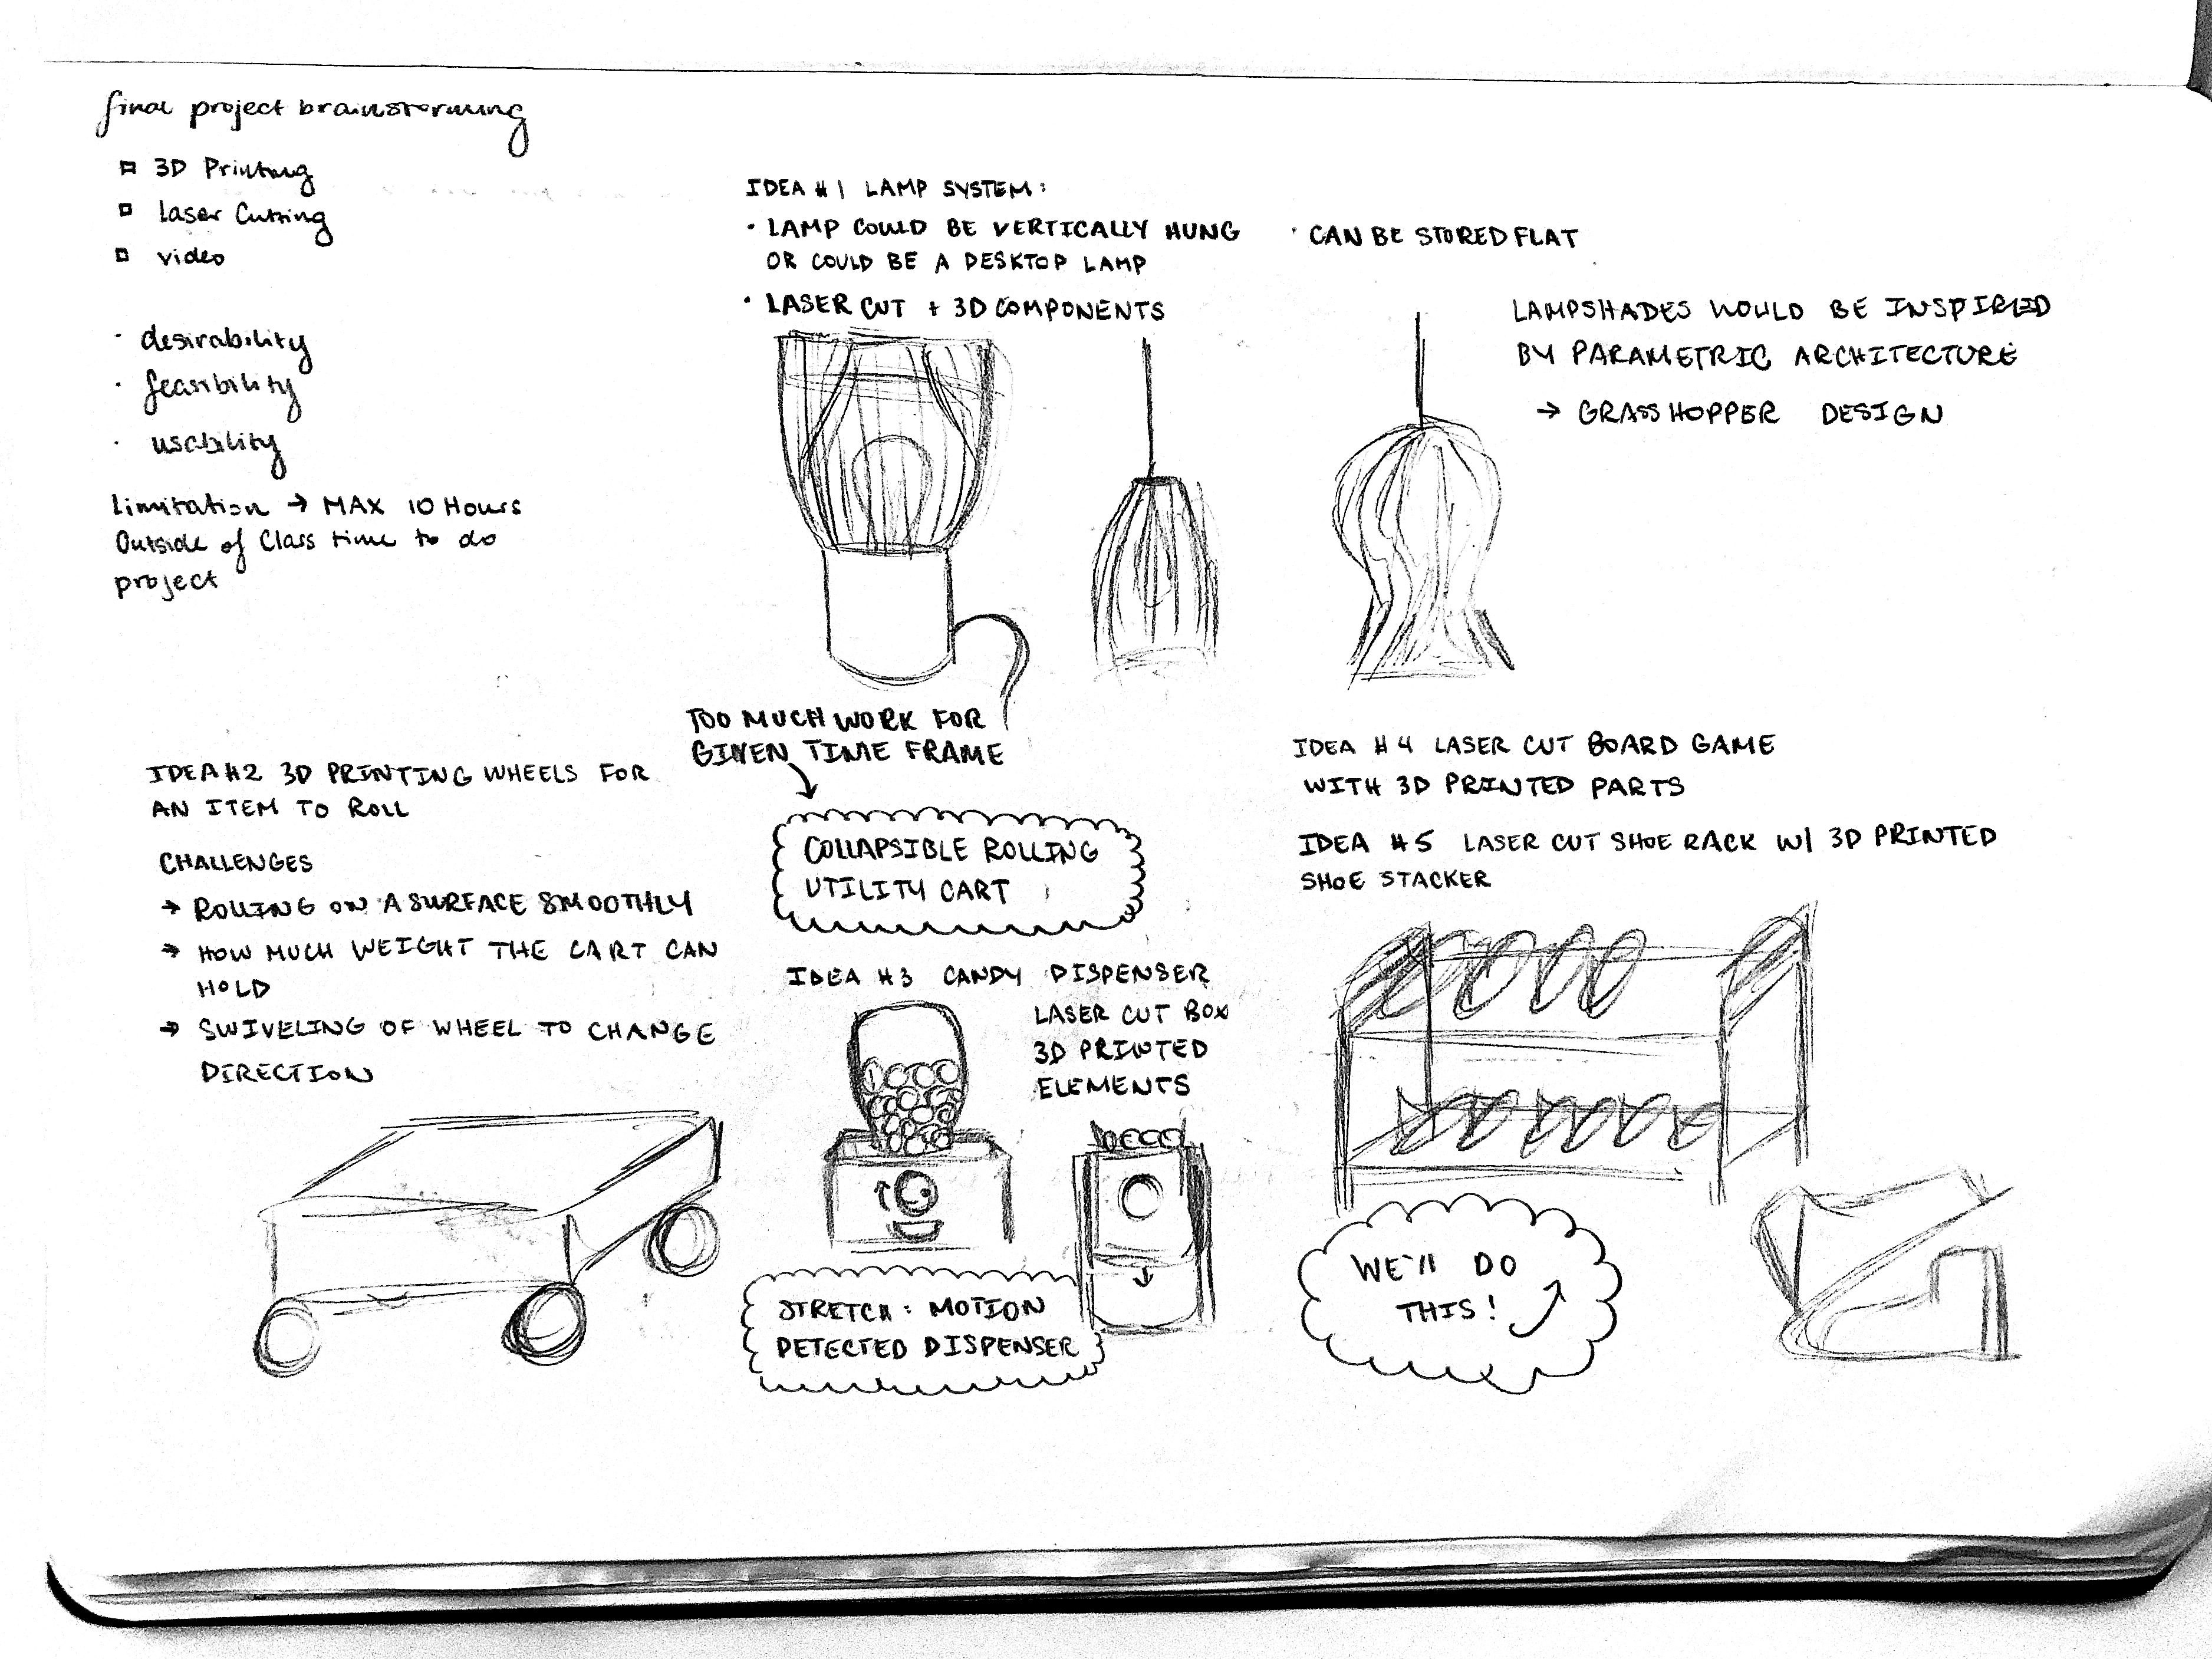 final project brainstorming
3D Printing
Laser Cutting
video
· desirability
· feasibility
· usability
Limitation → MAX 10 Hours
Outside of Class time to do
project
IDEA #1 LAMP SYSTEM:
· LAMP COULD BE VERTICALLY HUNG
OR COULD BE A DESKTOP LAMP
· LASER CUT + 3D COMPONENTS
· CAN BE STORED FLAT
LAMPSHADES WOULD BE INSPIRED
BY PARAMETRIC ARCHITECTURE
→ GRASSHOPPER DESIGN
IDEA #2 3D PRINTING WHEELS FOR
AN ITEM TO ROLL
CHALLENGES
→ ROLLING ON A SURFACE SMOOTHLY
→ HOW MUCH WEIGHT THE CART CAN
HOLD
→ SWIVELING OF WHEEL TO CHANGE
DIRECTION
TOO MUCH WORK FOR
GIVEN TIME FRAME
COLLAPSIBLE ROLLING
UTILITY CART
IDEA #3 CANDY DISPENSER
LASER CUT BOX
3D PRINTED
ELEMENTS
STRETCH: MOTION
DETECTED DISPENSER
IDEA #4 LASER CUT BOARD GAME
WITH 3D PRINTED PARTS
IDEA #5 LASER CUT SHOE RACK W/ 3D PRINTED
SHOE STACKER
WE'll DO
THIS!